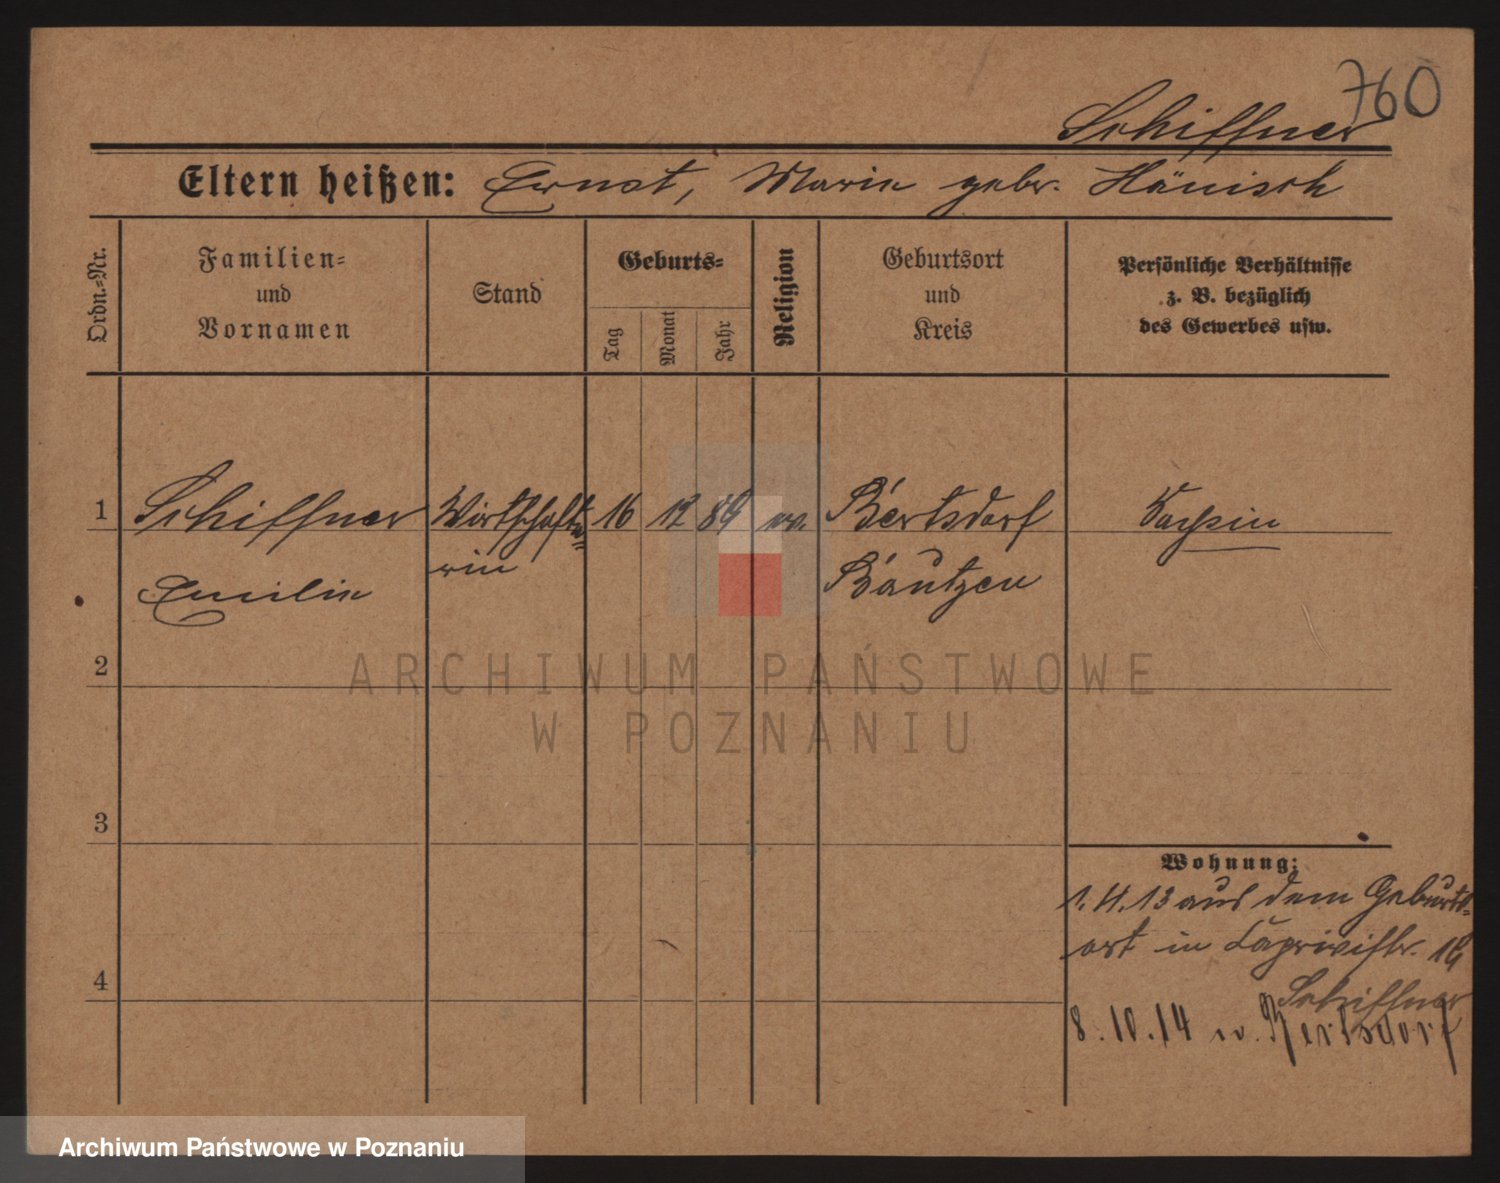 760
Schiffner
Eltern heißen: Ernst, Marie gebr. Hänisch
Ordn.-Nr.
Familien-
und
Vornamen
Stand
Geburts-
Tag
Monat
Jahr
Religion
Geburtsort
und
Kreis
Persönliche Verhältnisse
z. B. bezüglich
des Gewerbes usw.
1 Schiffner Wirtschafte- 16 12 89 ev. Bertsdorf
rin
Emilie Bautzen
2
3
4
Wohnung:
1.4.13 aus dem Geburts-
ort in Caprivistr.
Schiffner
8.10.14 n. Bertsdorf
ARCHIWUM PAŃSTWOWE
W POZNANIU
Archiwum Państwowe w Poznaniu